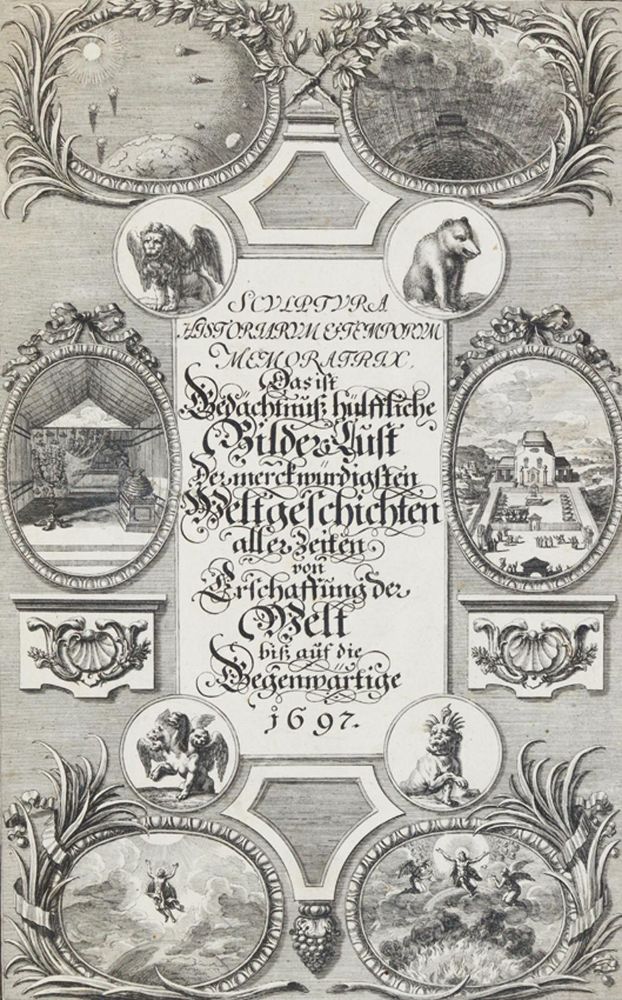 SCVLPTVRA
HISTORIARVM ET TEMPORVM
MEMORATRIX,
Das ist
Gedächtnuß hülffliche
Bilder Lust
Der merckwürdigsten
Weltgeschichten
aller Zeiten
von
Erschaffung der
Welt
biß auf die
Gegenwärtige
1697.